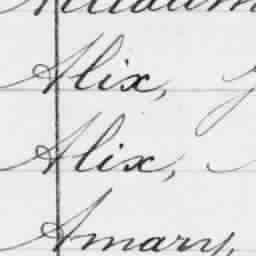 Alix,
Alix,
Amary,